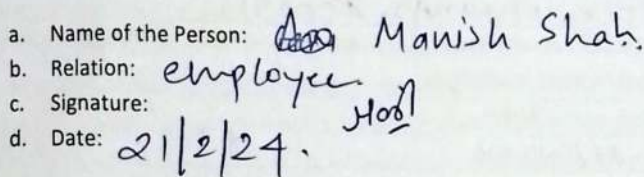 a. Name of the Person: Manish Shah.
b. Relation: employee.
c. Signature:
d. Date: 21/2/24.